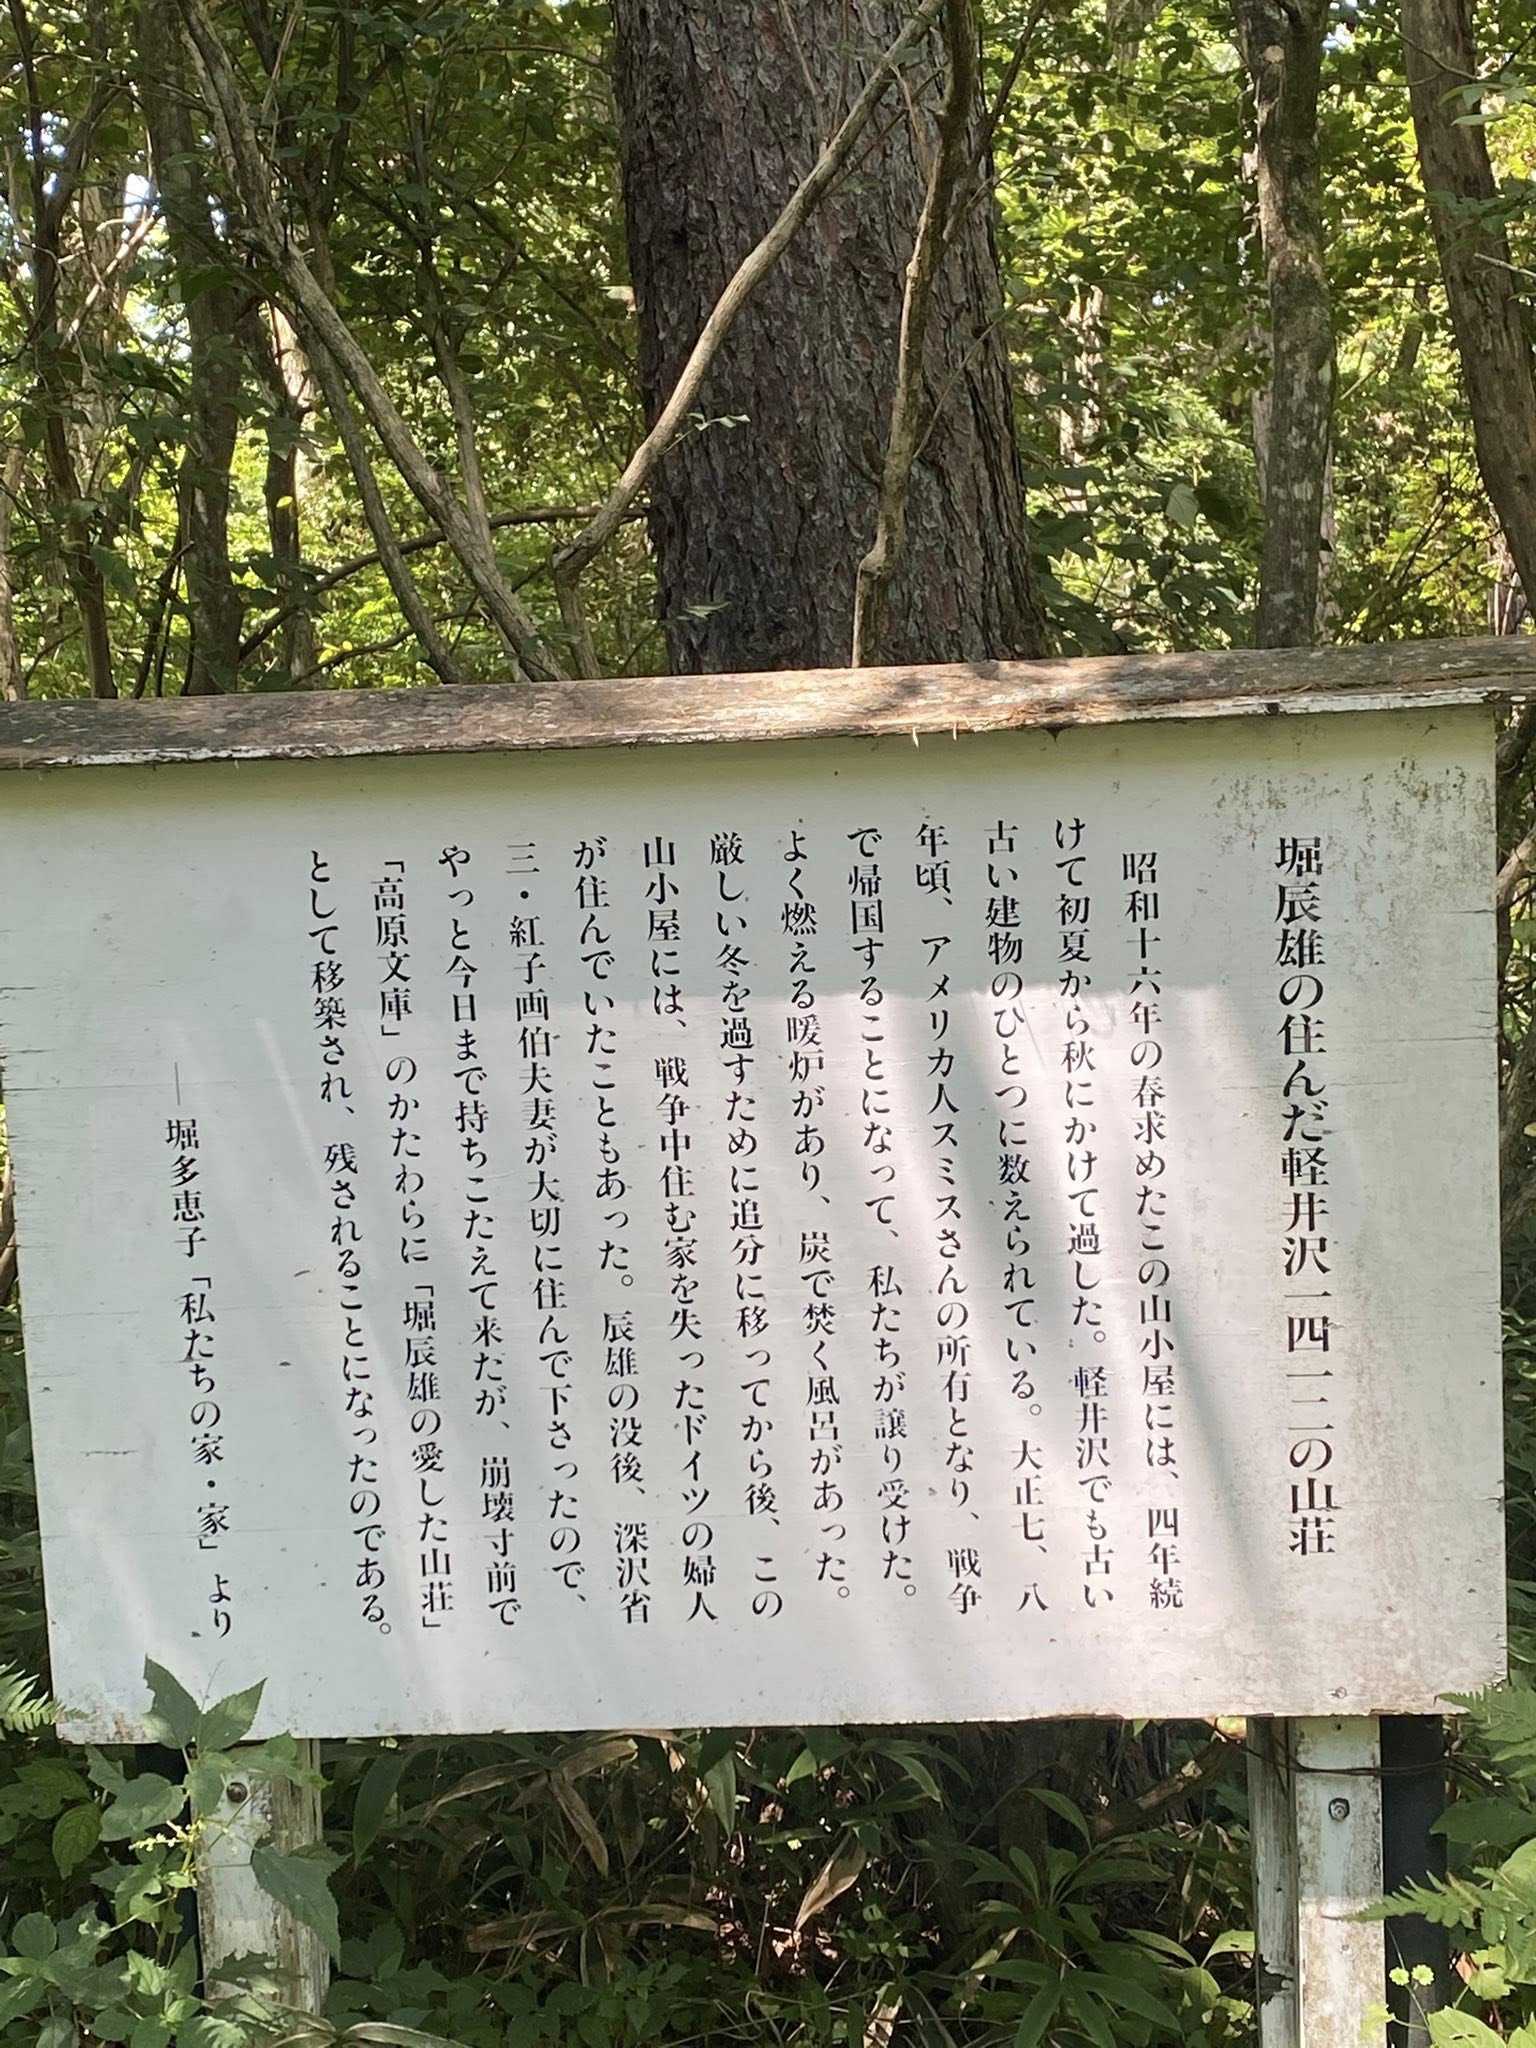 堀辰雄の住んだ軽井沢一四一二の山荘
昭和十六年の春求めたこの山小屋には、四年続
けて初夏から秋にかけて過した。軽井沢でも古い
古い建物のひとつに数えられている。大正七、八
年頃、アメリカ人スミスさんの所有となり、戦争
で帰国することになって、私たちが譲り受けた。
よく燃える暖炉があり、炭で焚く風呂があった。
厳しい冬を過すために追分に移ってから後、この
山小屋には、戦争中住む家を失ったドイツの婦人
が住んでいたこともあった。辰雄の没後、深沢省
三・紅子画伯夫妻が大切に住んで下さったので、
やっと今日まで持ちこたえて来たが、崩壊寸前で
「高原文庫」のかたわらに「堀辰雄の愛した山荘」
として移築され、残されることになったのである。
―堀多恵子「私たちの家・家」より